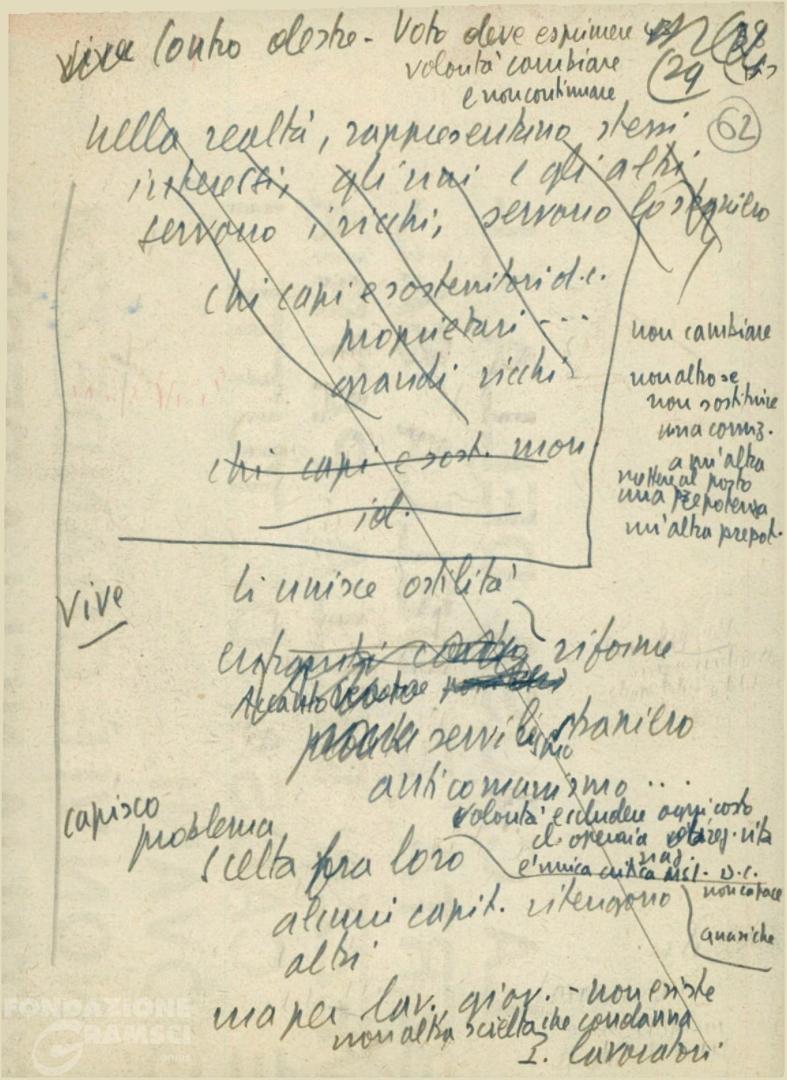 vive Contro destre - Voto deve esprimere
volontà cambiare
e non continuare
29
62
nella realtà, rappresentano stessi
interessi, gli uni e gli altri
servono i ricchi, servono lo straniero
chi capi e sostenitori d.c.
proprietari ...
grandi ricchi
chi capi e sost. mon.
id.
non cambiare
non altro se
non sostituire
una corruz.
a un'altra
mettere al posto
una prepotenza
un'altra prepot.
vive
li unisce ostilità
entrambi contro riforme
servilismo straniero
anticomunismo ...
capisco
problema
volontà escludere ogni costo
cl. operaia vita
naz.
è unica critica MSI - D.C.
non capace
scelta fra loro
alcuni capit. ritengono
altri
anziché
ma per lav. giov. - non esiste
non altra scelta che condanna
I. lavoratori